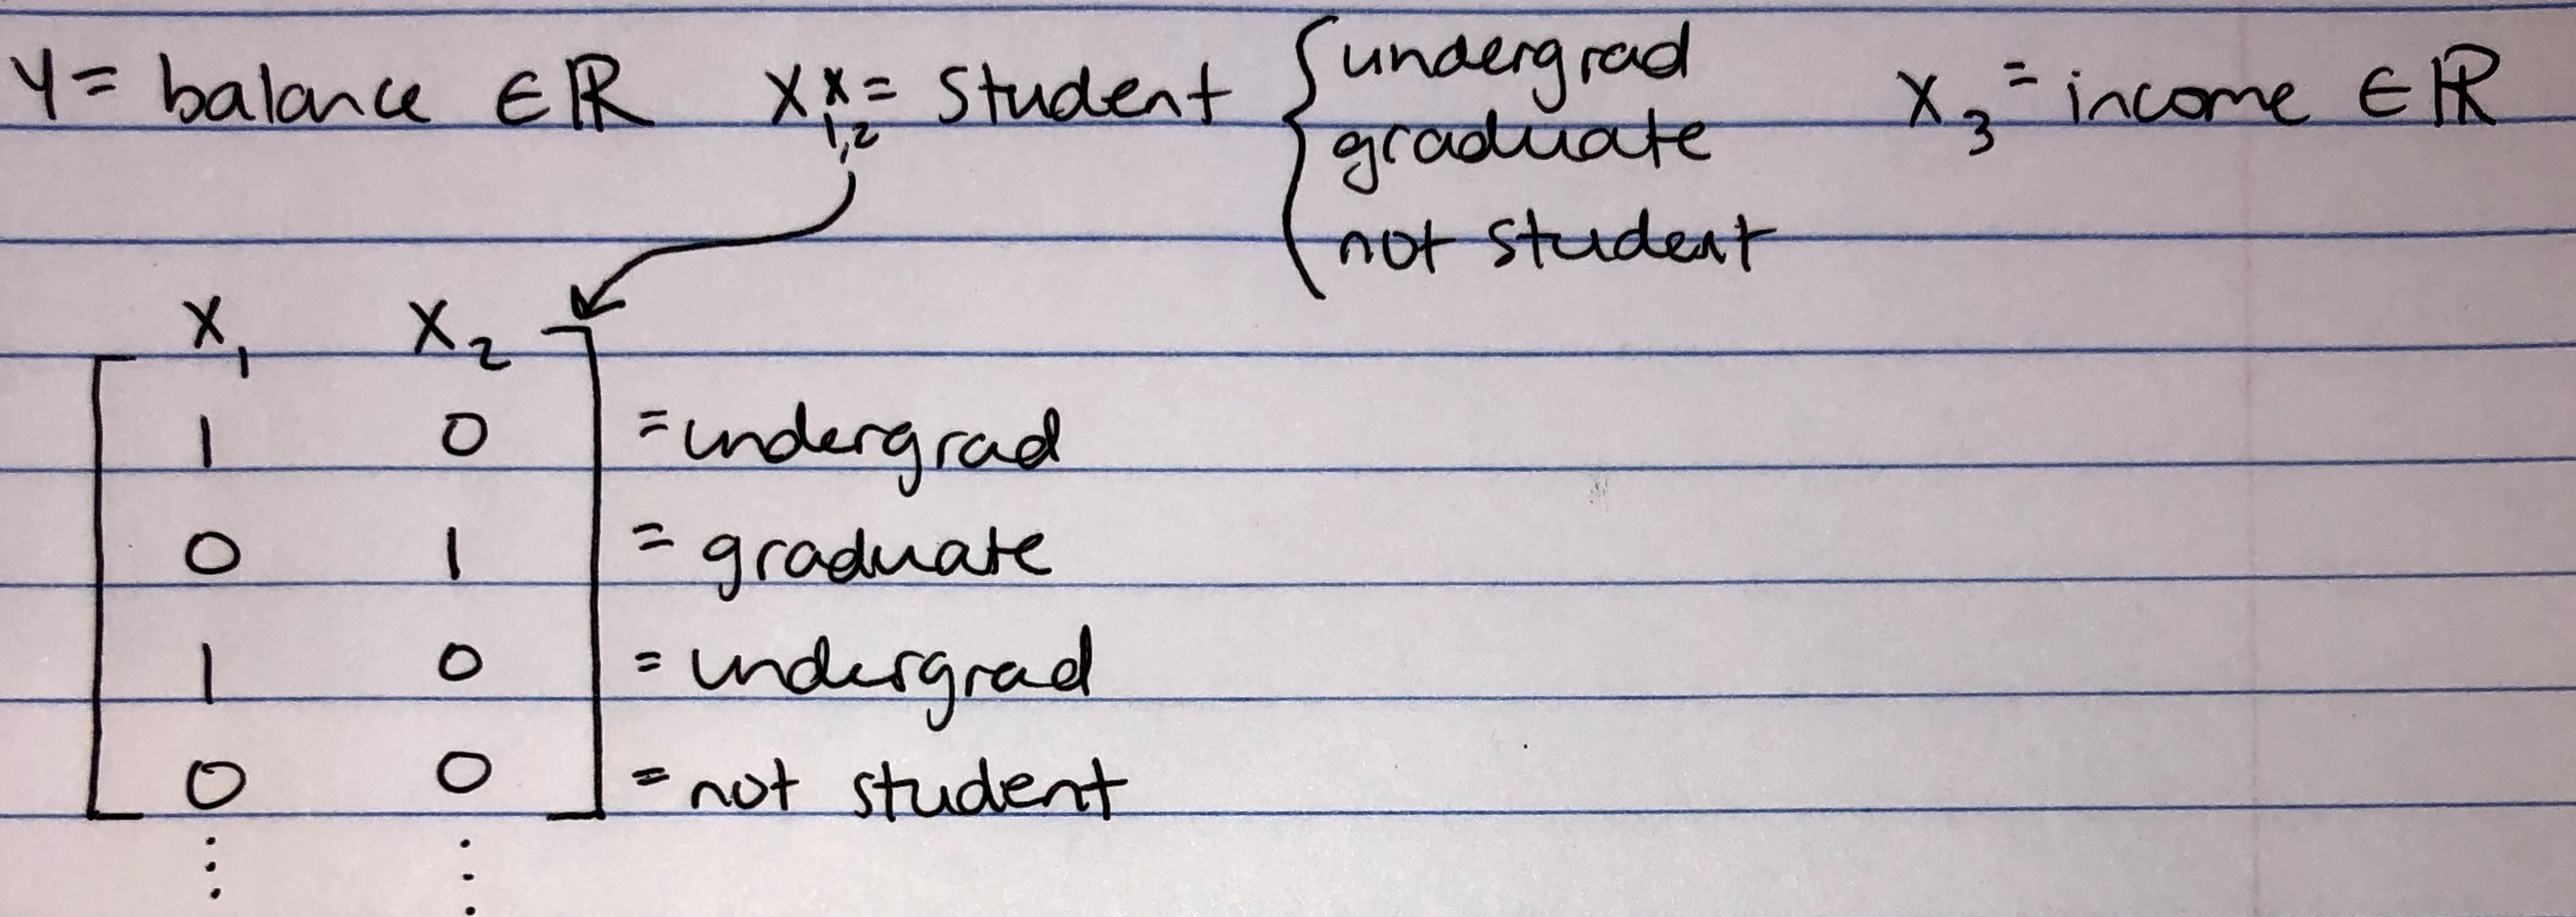 Y = balance ∈ ℝ X₁,₂ = Student { undergrad
graduate
not student
X₃ = income ∈ ℝ
X₁ X₂
1 0 = undergrad
0 1 = graduate
1 0 = undergrad
0 0 = not student
⋮ ⋮